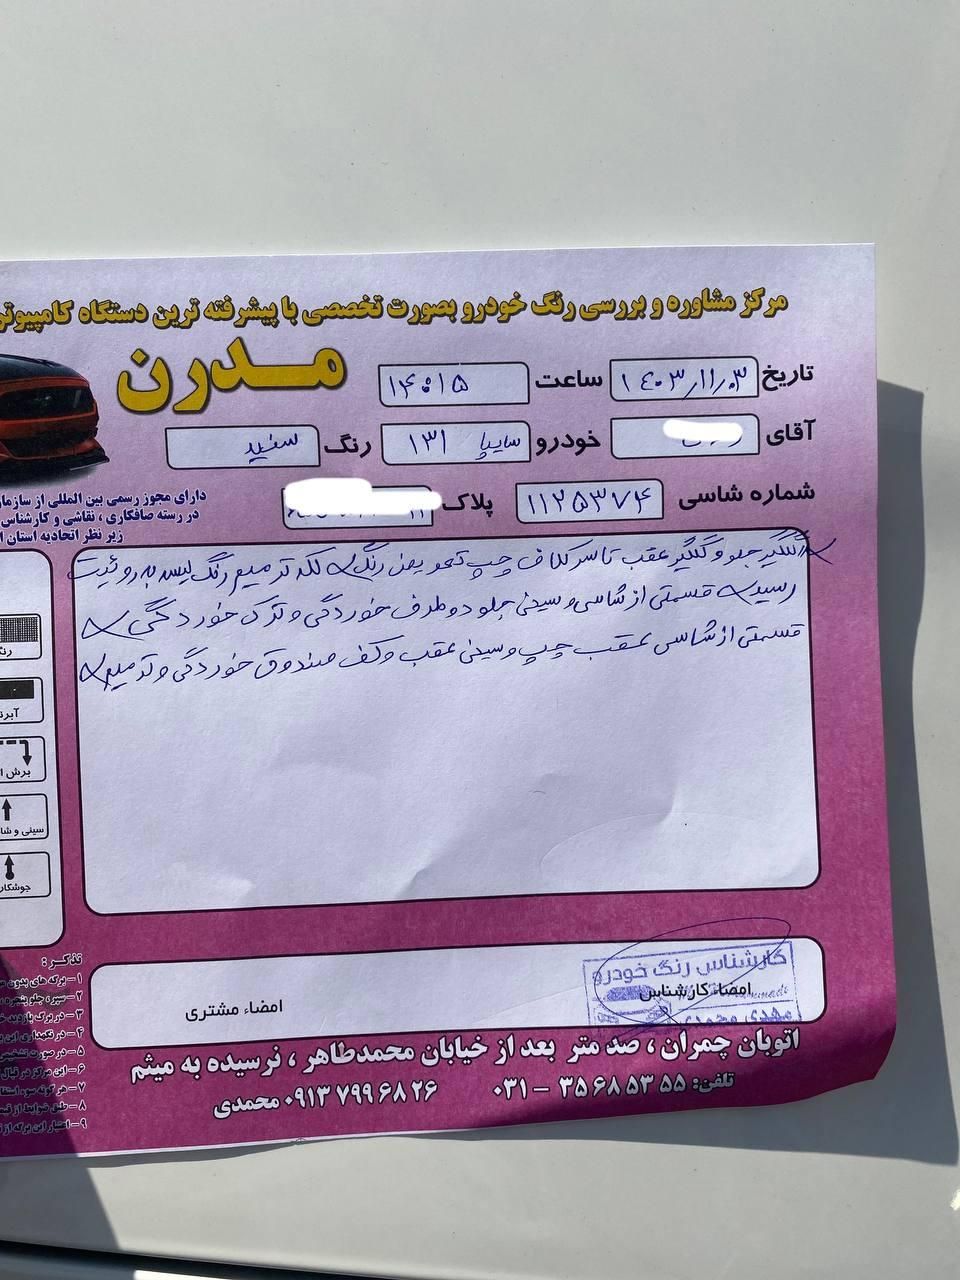 مرکز مشاوره و بررسی رنگ خودرو بصورت تخصصی با پیشرفته ترین دستگاه کامپیوتر
مدرن
تاریخ ۱۴۰۳/۱۱/۰۳ ساعت ۱۴:۱۵
آقای خودرو سایپا ۱۳۱ رنگ سفید
شماره شاسی ۱۱۲۵۳۷۴ پلاک
دارای مجوز رسمی بین المللی از سازمان
در رسته صافکاری ، نقاشی و کارشناس
زیر نظر اتحادیه استان
گلگیر جلو و گلگیر عقب تا سر کلاف چپ تعویض رنگ لکه ترمیم رنگ لیسه به روئیت
رسید قسمتی از شاسی و سینی جلو دو طرف خوردگی و ترک خوردگی
قسمتی از شاسی عقب چپ و سینی عقب و کف صندوق خوردگی و ترمیم
رنگ
آبرنگ
برش
سینی و شا
جوشکار
کارشناس رنگ خودرو
امضاء کارشناس
مهدی محمدی
امضاء مشتری
تذکر :
۱ - برگه های بدون
۲ - سپر ، جلو پنجره
۳ - در برگ بازدید
۴ - در نگهداری این
۵ - در صورت تشخیص
۶ - این مرکز در قبال
۷ - هر گونه سوء استفا
۸ - طبق ضوابط از
۹ - اعتبار این برگه از
اتوبان چمران ، صد متر بعد از خیابان محمدطاهر ، نرسیده به میثم
تلفن: ۳۵۶۸۵۳۵۵ - ۰۳۱ ۰۹۱۳۷۹۹۶۸۲۶ محمدی